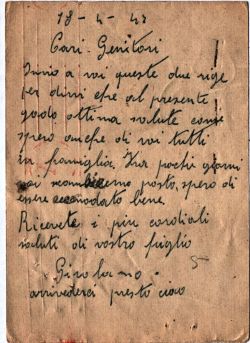 18-4-43
Cari Genitori
Invio a voi queste due rige
per dirvi che al presente
godo ottima salute come
spero anche di voi tutti
in famiglia. Fra pochi giorni
posto, spero di
essere accomodato bene.
Ricevete i più cordiali
saluti di vostro figlio
Girolamo.
arrivederci presto ciao